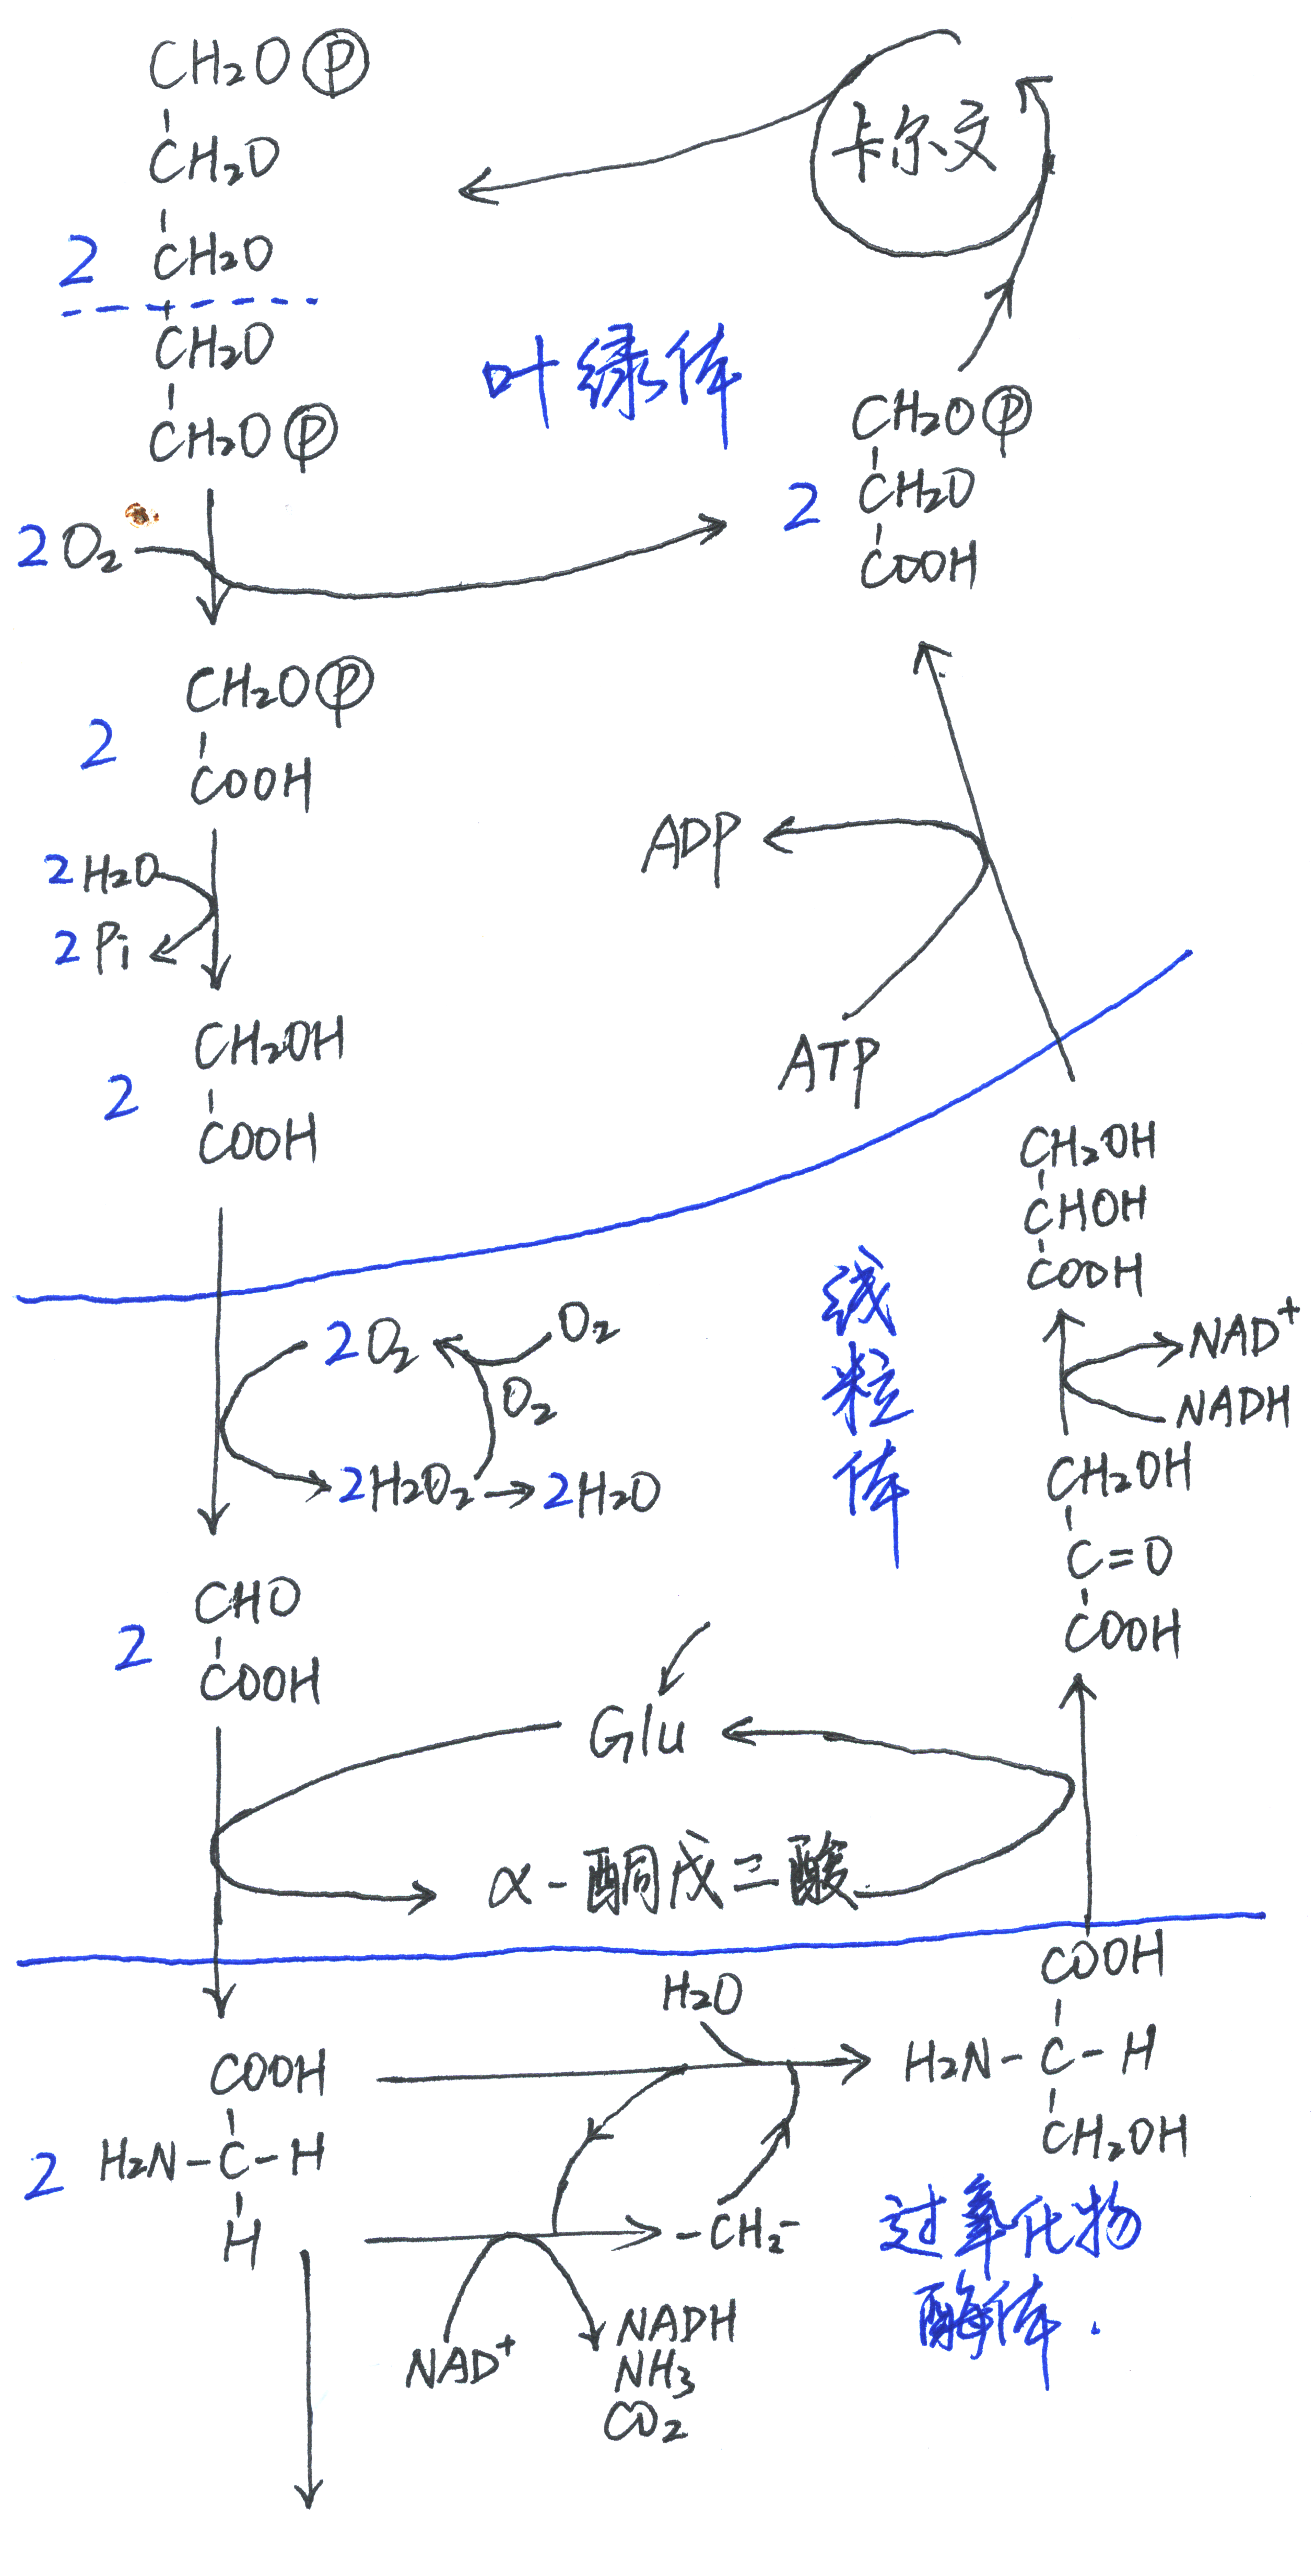 CH₂OⓅ
CH₂O
2 CH₂O
CH₂O
CH₂OⓅ
卡尔文
叶绿体
2O₂
CH₂OⓅ
2 CH₂O
COOH
CH₂OⓅ
2
COOH
2H₂O
2Pi
ADP
ATP
CH₂OH
2
COOH
CH₂OH
CHOH
COOH
2O₂
O₂
O₂
2H₂O₂→2H₂O
线粒体
NAD⁺
NADH
CH₂OH
C=O
COOH
CHO
2
COOH
Glu
α-酮戊二酸
COOH
H₂N-C-H
2
H
H₂O
COOH
H₂N-C-H
CH₂OH
-CH₂-
NAD⁺
NADH
NH₃
CO₂
过氧化物
酶体.